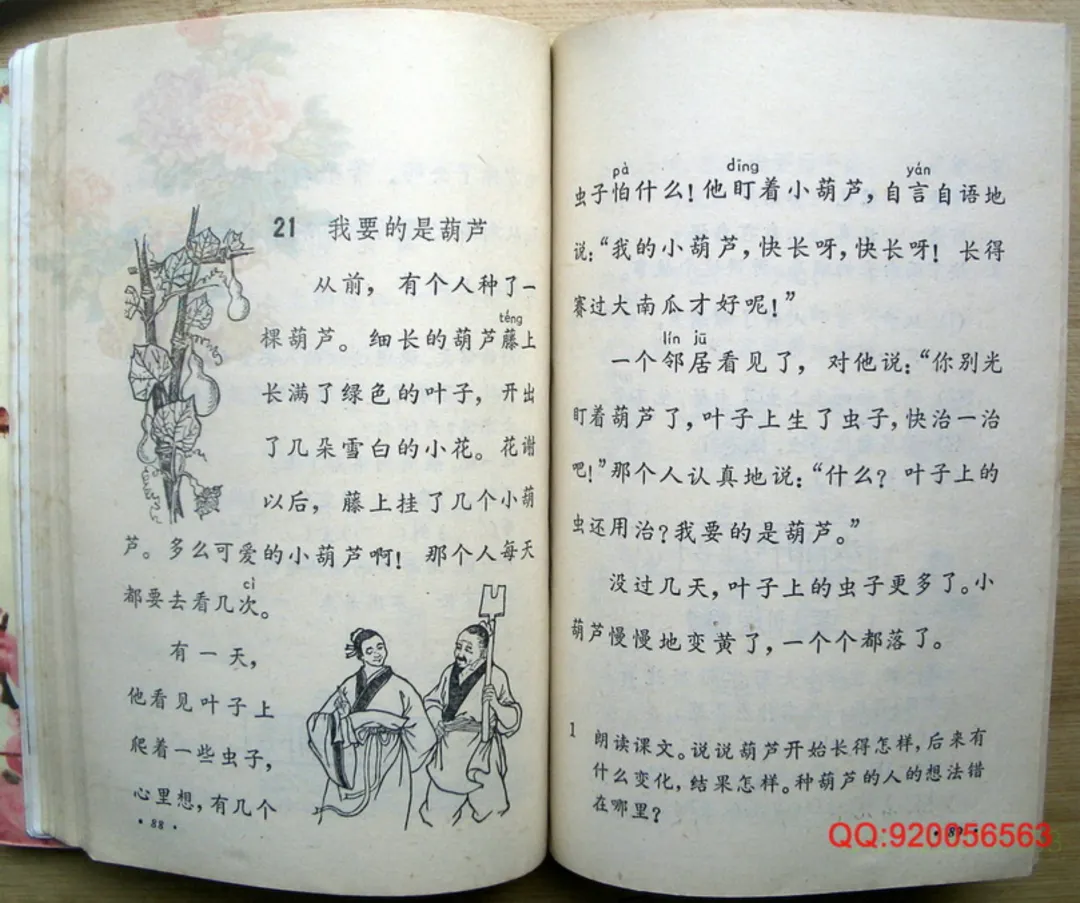 21 我要的是葫芦
从前，有个人种了一
téng
棵葫芦。细长的葫芦藤上
长满了绿色的叶子，开出
了几朵雪白的小花。花谢
以后，藤上挂了几个小葫
芦。多么可爱的小葫芦啊！那个人每天
cì
都要去看几次。
有一天，
他看见叶子上
爬着一些虫子，
心里想，有几个
·88·
pà dīng yán
虫子怕什么！他盯着小葫芦，自言自语地
说：“我的小葫芦，快长呀，快长呀！长得
赛过大南瓜才好呢！”
lín jū
一个邻居看见了，对他说：“你别光
盯着葫芦了，叶子上生了虫子，快治一治
吧！”那个人认真地说：“什么？叶子上的
虫还用治？我要的是葫芦。”
没过几天，叶子上的虫子更多了。小
葫芦慢慢地变黄了，一个个都落了。
1 朗读课文。说说葫芦开始长得怎样，后来有
什么变化，结果怎样。种葫芦的人的想法错
在哪里？
·89·
QQ:920056563